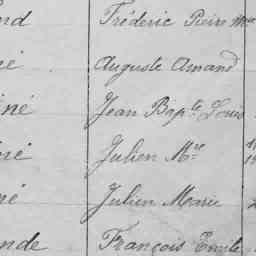 nd Frédéric Pierre M
é Auguste Amand
iné Jean Bapte Louis
é Julien Mie
né Julien Marie
nde François Emile